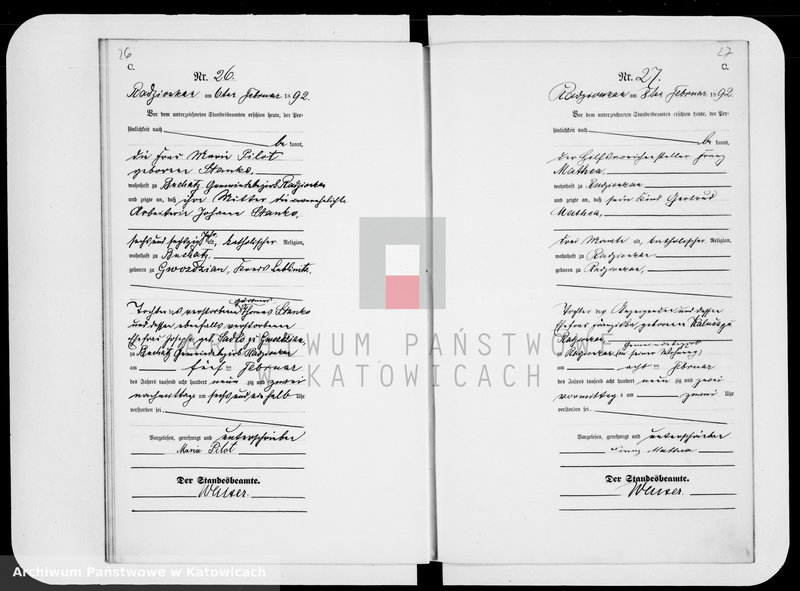 26
C.
Nr. 26.
Radzionkau am 6ten Februar 1892.
Vor dem unterzeichneten Standesbeamten erschien heute, der Per-
sönlichkeit nach
be kannt,
die Frau Marie Pilot
geborene Stanko,
wohnhaft zu Buchatz Gemeindebezirks Radzionkau
und zeigte an, daß ihre Mutter die unverehelichte
Arbeiterin Johanna Stanko,
sechs und sechszig Jahre alt, katholischer Religion,
wohnhaft zu Buchatz,
geboren zu Gwozdzian, Kreis Lublinitz,
Tochter des verstorbenen Thomas Stanko
und dessen ebenfalls verstorbenen
Ehefrau geb.
zu Buchatz Gemeindebezirks Radzionkau
am fünf ten Februar
des Jahres tausend acht hundert neun zig und zwei
nachmittags um sechs und ein halb Uhr
verstorben sei.
Vorgelesen, genehmigt und unterschrieben
Marie Pilot
Der Standesbeamte.
27
C.
Nr. 27.
Radzionkau am 8ten Februar 1892.
Vor dem unterzeichneten Standesbeamten erschien heute, der Per-
sönlichkeit nach
be kannt,
der Hilfsweichensteller Franz
Mathea,
wohnhaft zu Radzionkau
und zeigte an, daß sein Kind Gertrud
Mathea,
drei Monate alt, katholischer Religion,
wohnhaft zu Radzionkau
geboren zu Radzionkau,
Tochter des Anzeigenden und dessen
Ehefrau Franziska geborenen
zu Radzionkau (in seiner Wohnung)
am acht ten Februar
des Jahres tausend acht hundert neun zig und zwei
vormittags um zwei Uhr
verstorben sei.
Vorgelesen, genehmigt und unterschrieben
Franz Mathea
Der Standesbeamte.
ARCHIWUM PAŃSTWOWE
W KATOWICACH
Archiwum Państwowe w Katowicach